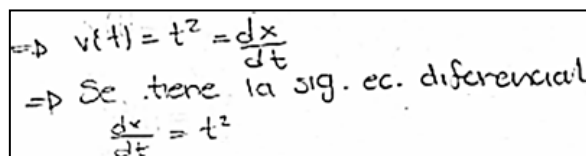 => v(t) = t² = dx/dt
=> Se tiene la sig. ec. diferencial
dx/dt = t²